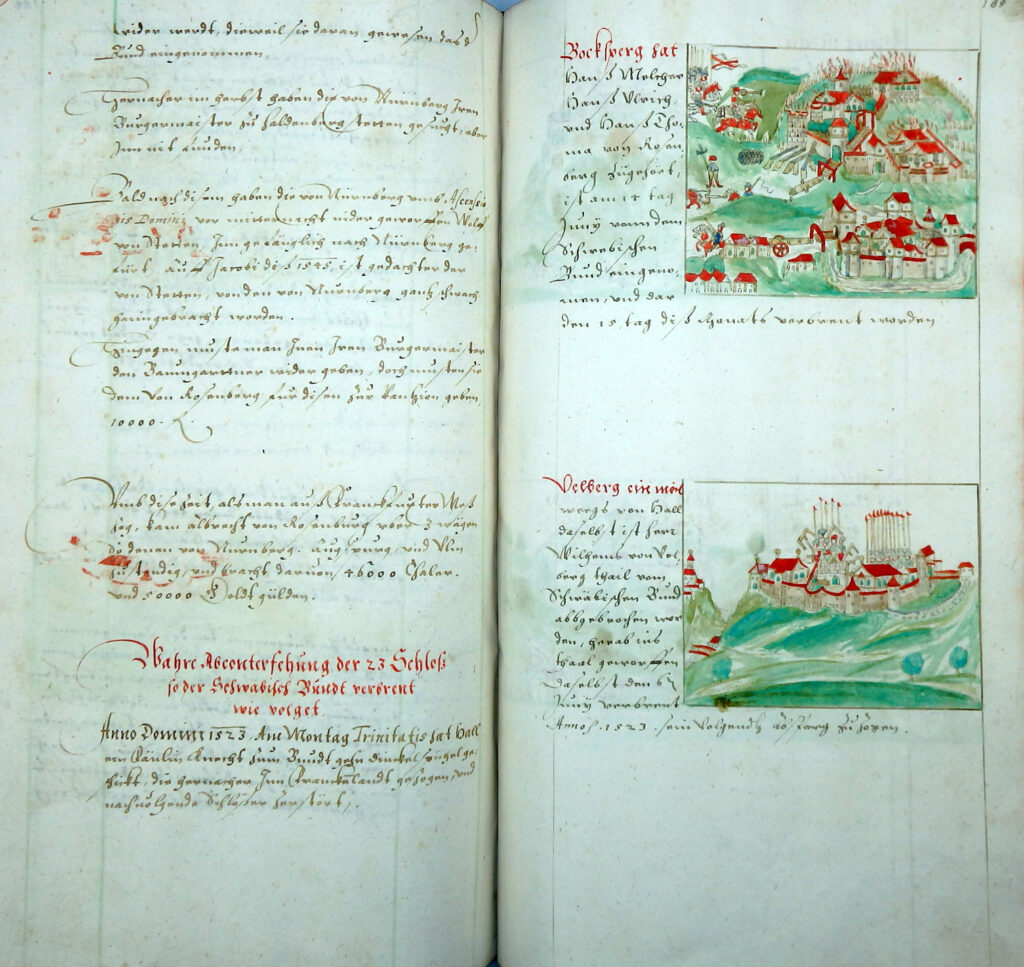 wider werdt, dieweil sie daran gewesen das d
Bund eingenommen.
Hernacher im herbst haben die von Nürnberg Iren
Burgermaister zu Haldenbergstetten gesucht, aber
Inn nit funden.
Bald nach disem haben die von Nürnberg umb Ascensio
nis Domini vor mitternacht nider geworffen Wolf
von Stetten, Inn gefänglich nach Nürnberg ge-
fürt, auff Jacobi diß 1545, ist gedachter der
von Stetten, von den von Nürnberg gantz schwach
haimgebracht worden.
Hingegen muste man Inen Iren Burgermaister
den Baumgarttner wider geben, doch musten sie
dem von Rosenberg für disen zur Rantzion geben,
10000.
Umb dise Zeit, als man auß Franckfurter Meß
zog, kam Albrecht von Rosenburg uber 3 wägen
so denen von Nurnberg, Augspurg, und Ulm
zustendig, und bracht daruon 46000 Thaler.
und 50000 Goldtgülden.
Wahre Abconterfehung der 23 Schloß
so der Schwäbisch Bundt verbrent
wie volget
Anno Domini 1523. Am Montag Trinitatis hat Hall
ein Fäulin Knecht zum Bundt gehn Dinckelspühel ge-
schickt, die hernacher Inn Franckenlandt gezogen, und
nachuolgende Schlösser zerstört,
Bocksperg hat
Hanß Melcher
Hanß Ulrich,
und Hanß Tho-
ma von Rosen
berg zugehört,
ist am 12 tag
Juny von dem
Schwebischen
Bund eingeno-
men, und dar
den 15. tag diß Monats verbrent worden
Velberg ein meil
weegs von Hall
daselbst ist herr
Wilhelms von Vel
berg thail vom
Schwäbischen Bund
abgebrochen wor
den, herab ins
thaal geworffen
Daselbst den 6
Juny verbrent
Anno. 1523. sein volgendts zu zogen.